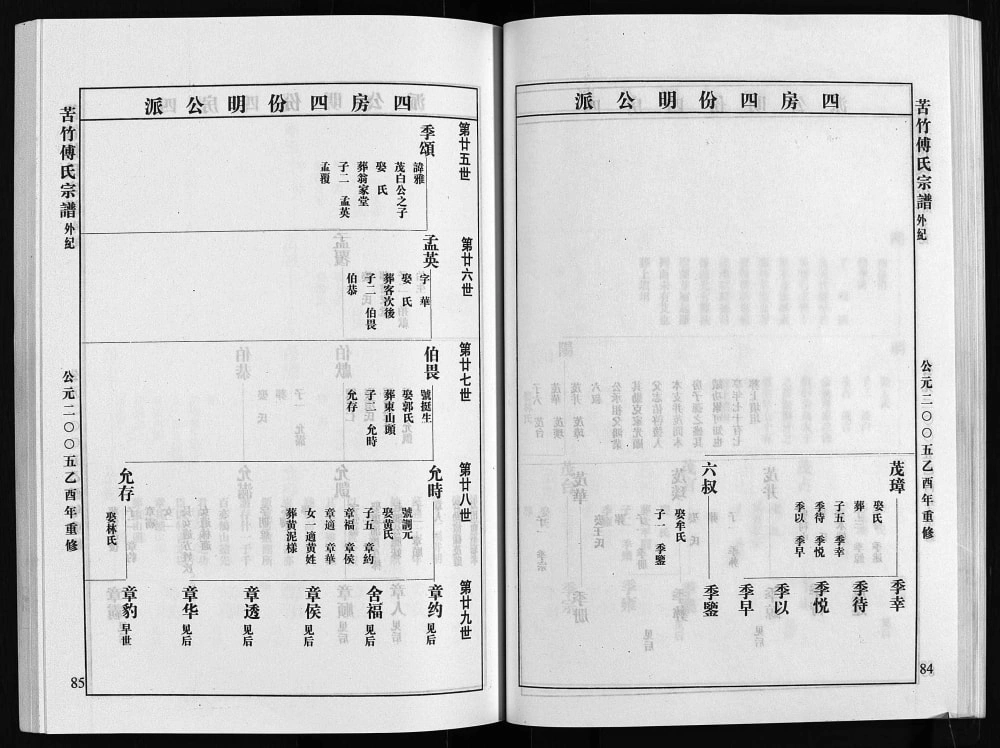 苦竹傅氏宗譜 外紀
公元二〇〇五乙酉年重修
84
四房四份明公派
茂璋
娶氏
葬
子五 季幸
季待 季悦
季以 季早
六叔
娶牟氏
子一 季鑒
季幸
季待
季悦
季以
季早
季鑒
四房四份明公派
第廿五世
季頌
諱雅
茂白公之子
娶 氏
葬翁家堂
子二 孟英
孟覆
第廿六世
孟英
字 華
娶 氏
葬客次後
子二 伯畏
伯恭
第廿七世
伯畏
號挺生
娶郭氏
葬東山頭
子二 允時
允存
第廿八世
允時
號調元
娶黄氏
子五 章約
章福 章侯
章適 章華
女一適黄姓
葬黄泥樣
允存
娶林氏
第廿九世
章约 见后
舍福 见后
章侯 见后
章透 见后
章华 见后
章豹 早世
苦竹傅氏宗譜 外紀
公元二〇〇五乙酉年重修
85